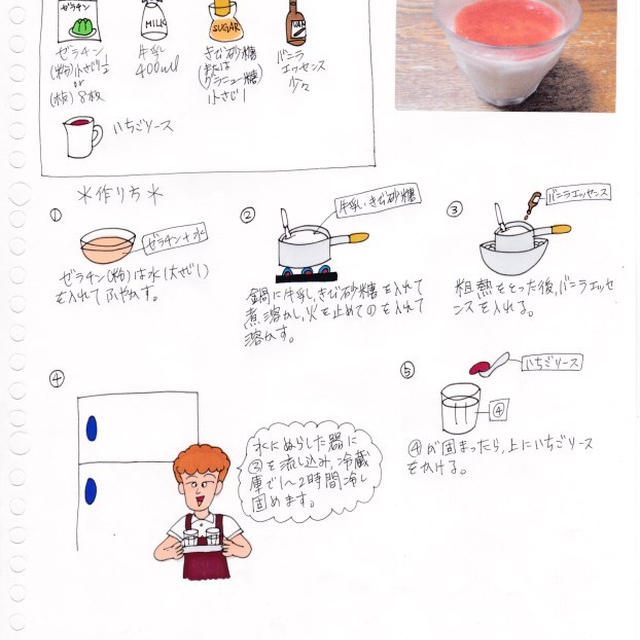 ゼラチン
MILK
SUGAR
ゼラチン
(粉)小さじ1/2
or
(板)8枚
牛乳
400ml
きび砂糖
(または
グラニュー糖)
小さじ1
バニラ
エッセンス
少々
いちごソース
*作り方*
①
ゼラチン+水
ゼラチン(粉)は水(大さじ1)
を入れてふやかす。
②
牛乳・きび砂糖
鍋に牛乳、きび砂糖を入れて
煮溶かし、火を止めて①を入れて
溶かす。
③
バニラエッセンス
粗熱をとった後、バニラエッセ
ンスを入れる。
④
水にぬらした器に
③を流し込み、冷蔵
庫で1〜2時間冷し
固めます。
⑤
いちごソース
④
④が固まったら、上にいちごソース
をかける。